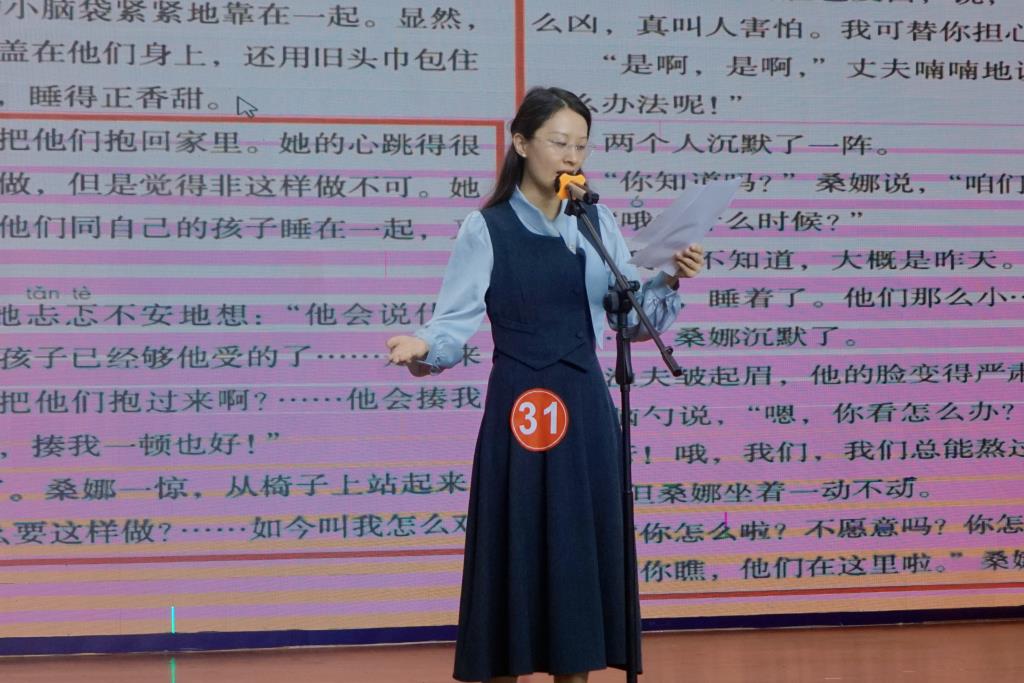 小脑袋紧紧地靠在一起。显然，
盖在他们身上，还用旧头巾包住
，睡得正香甜。
把他们抱回家里。她的心跳得很
做，但是觉得非这样做不可。她
他们同自己的孩子睡在一起，
tǎn tè
地忐忑不安地想：“他会说什
孩子已经够他受的了……是 来
把他们抱过来啊？……他会揍我
，揍我一顿也好！”
。桑娜一惊，从椅子上站起来
么要这样做？……如今叫我怎么对
么凶，真叫人害怕。我可替你担心
“是啊，是啊，”丈夫喃喃地说
么办法呢！”
两个人沉默了一阵。
“你知道吗？”桑娜说，“咱们
“哦 什么时候？”
不知道，大概是昨天。
睡着了。他们那么小…
桑娜沉默了。
夫皱起眉，他的脸变得严肃
勺说，“嗯，你看怎么办？
！哦，我们，我们总能熬过
但桑娜坐着一动不动。
你怎么啦？不愿意吗？你怎
你瞧，他们在这里啦。”桑娜
31